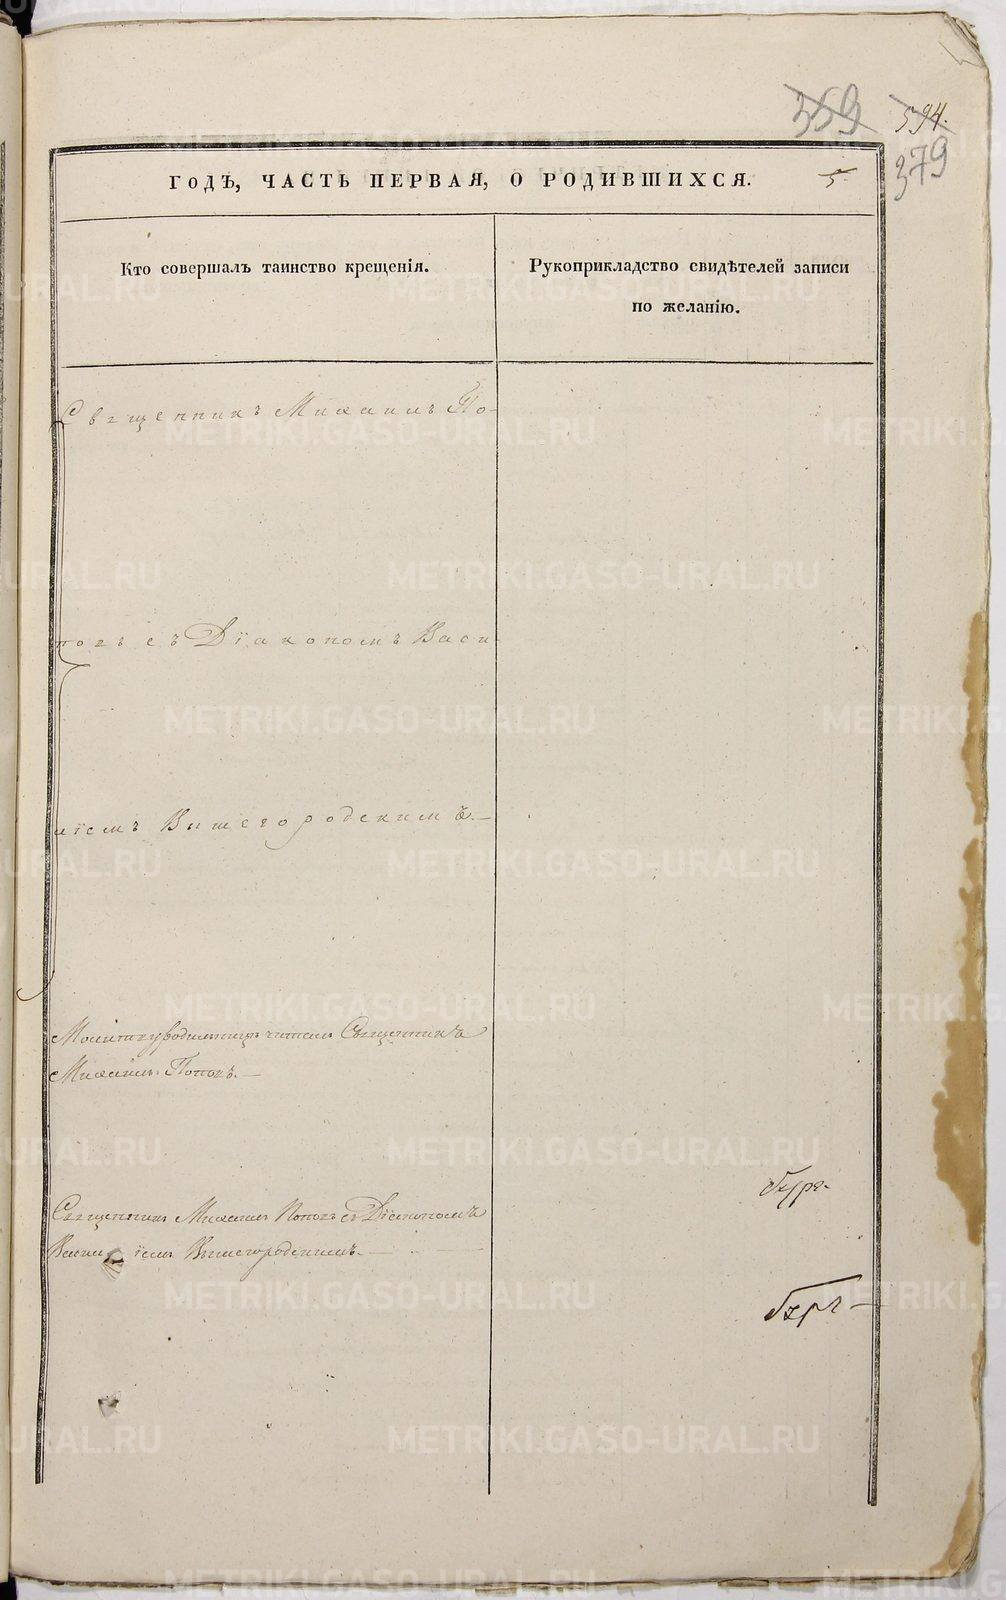 359 594.
379
ГОДЪ, ЧАСТЬ ПЕРВАЯ, О РОДИВШИХСЯ. 5.
Кто совершалъ таинство крещенія.
Рукоприкладство свидѣтелей записи
по желанію.
Священникъ Михаилъ По-
повъ съ Діакономъ Васи-
ліемъ Вышегородскимъ.—
Молитву родильницѣ читалъ Священникъ
Михаилъ Поповъ.—
Священникъ Михаилъ Поповъ съ Діакономъ
Василіемъ Вышегородскимъ.—
METRIKI.GASO-URAL.RU